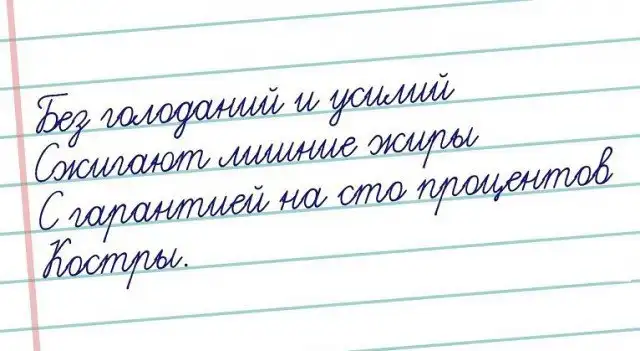 Без голоданий и усилий
Сжигают лишние жиры
С гарантией на сто процентов
Костры.